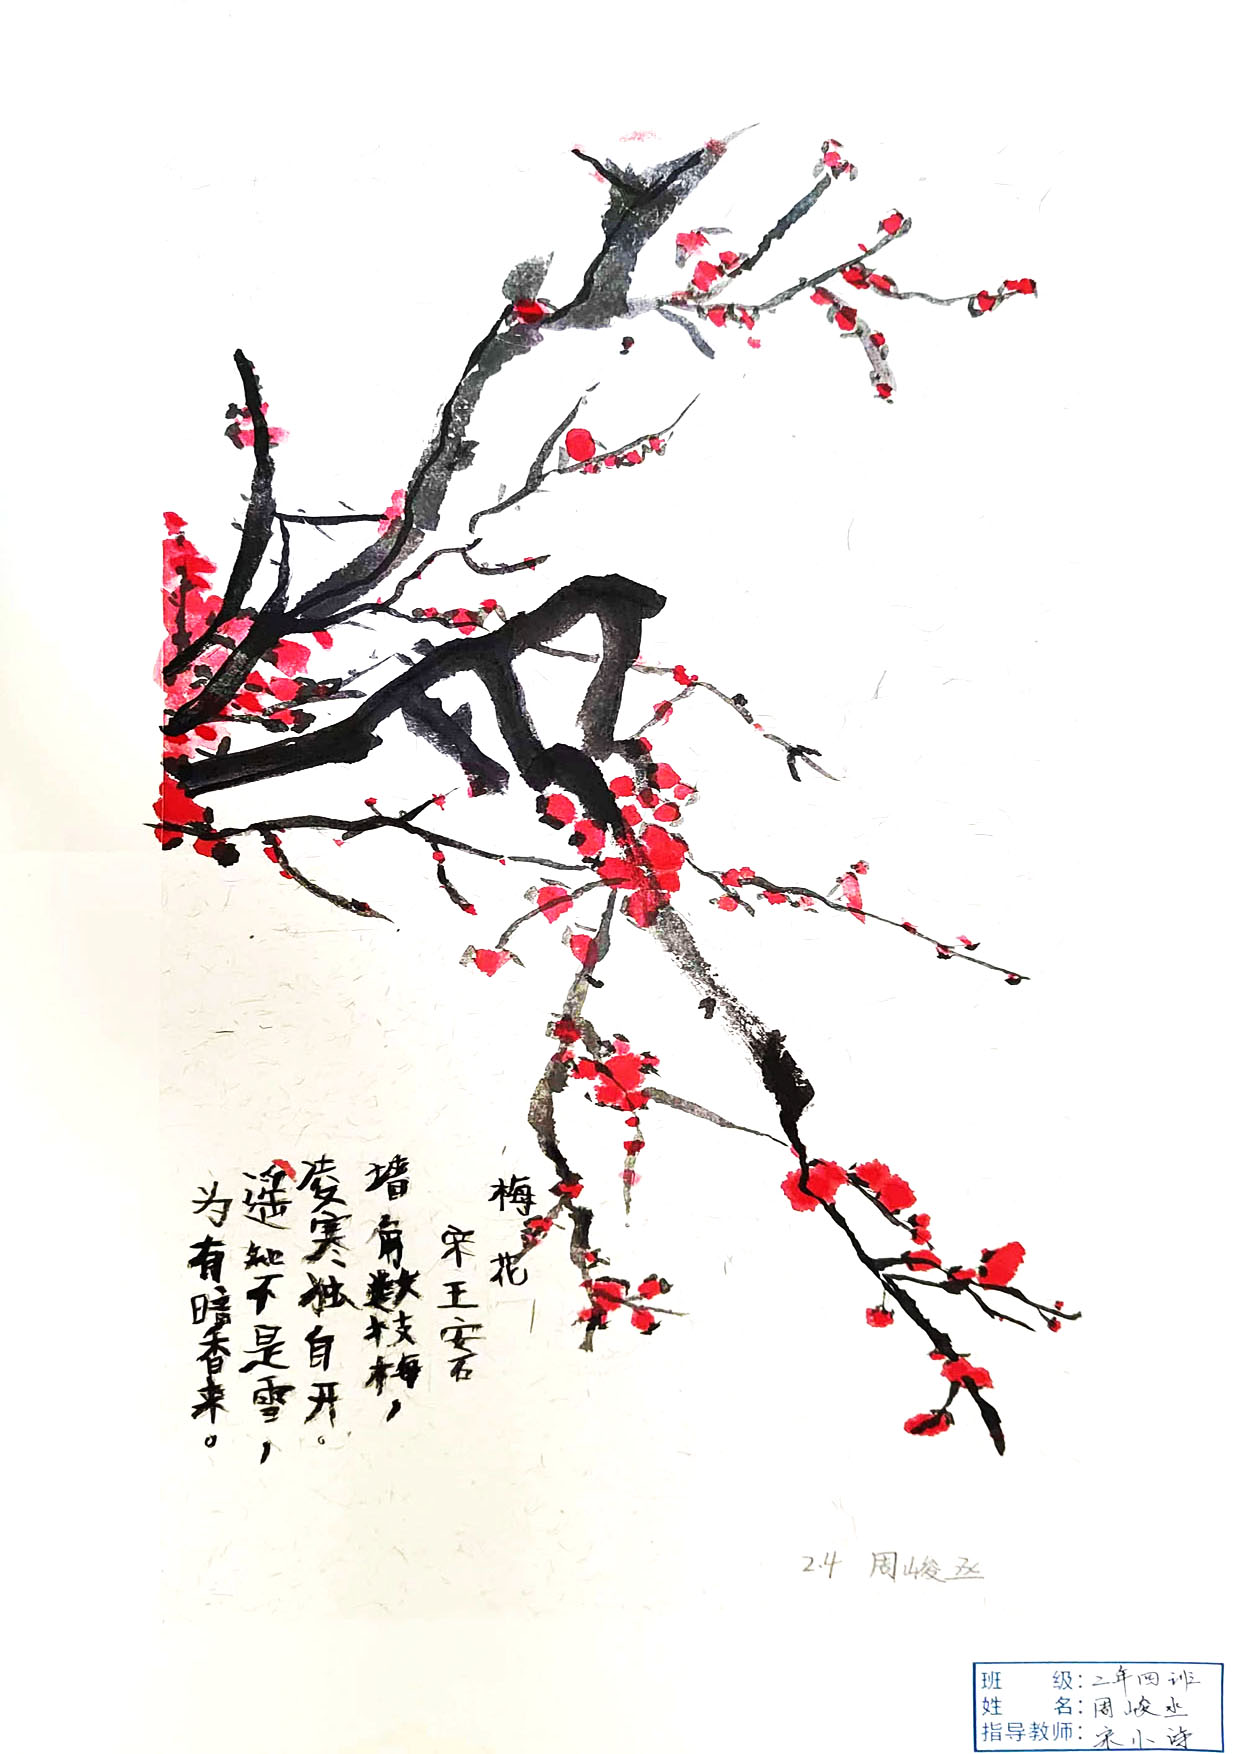 梅花
宋 王安石
墙角数枝梅，
凌寒独自开。
遥知不是雪，
为有暗香来。
2.4 周峻丞
班 级：二年四班
姓 名：周峻丞
指导教师：宋小诗